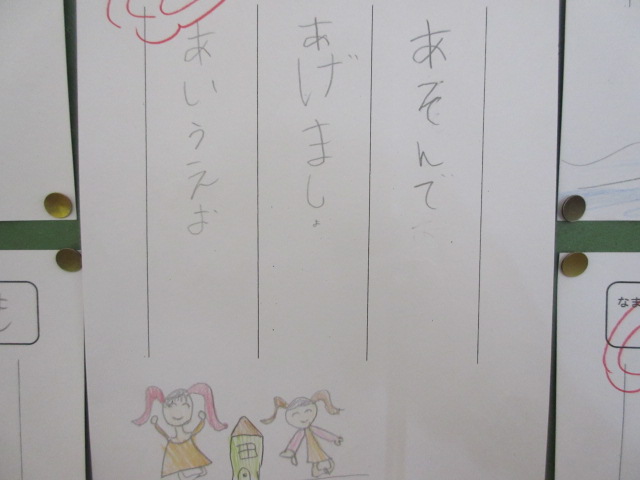 あそんで
あげましょ
あいうえお
なま